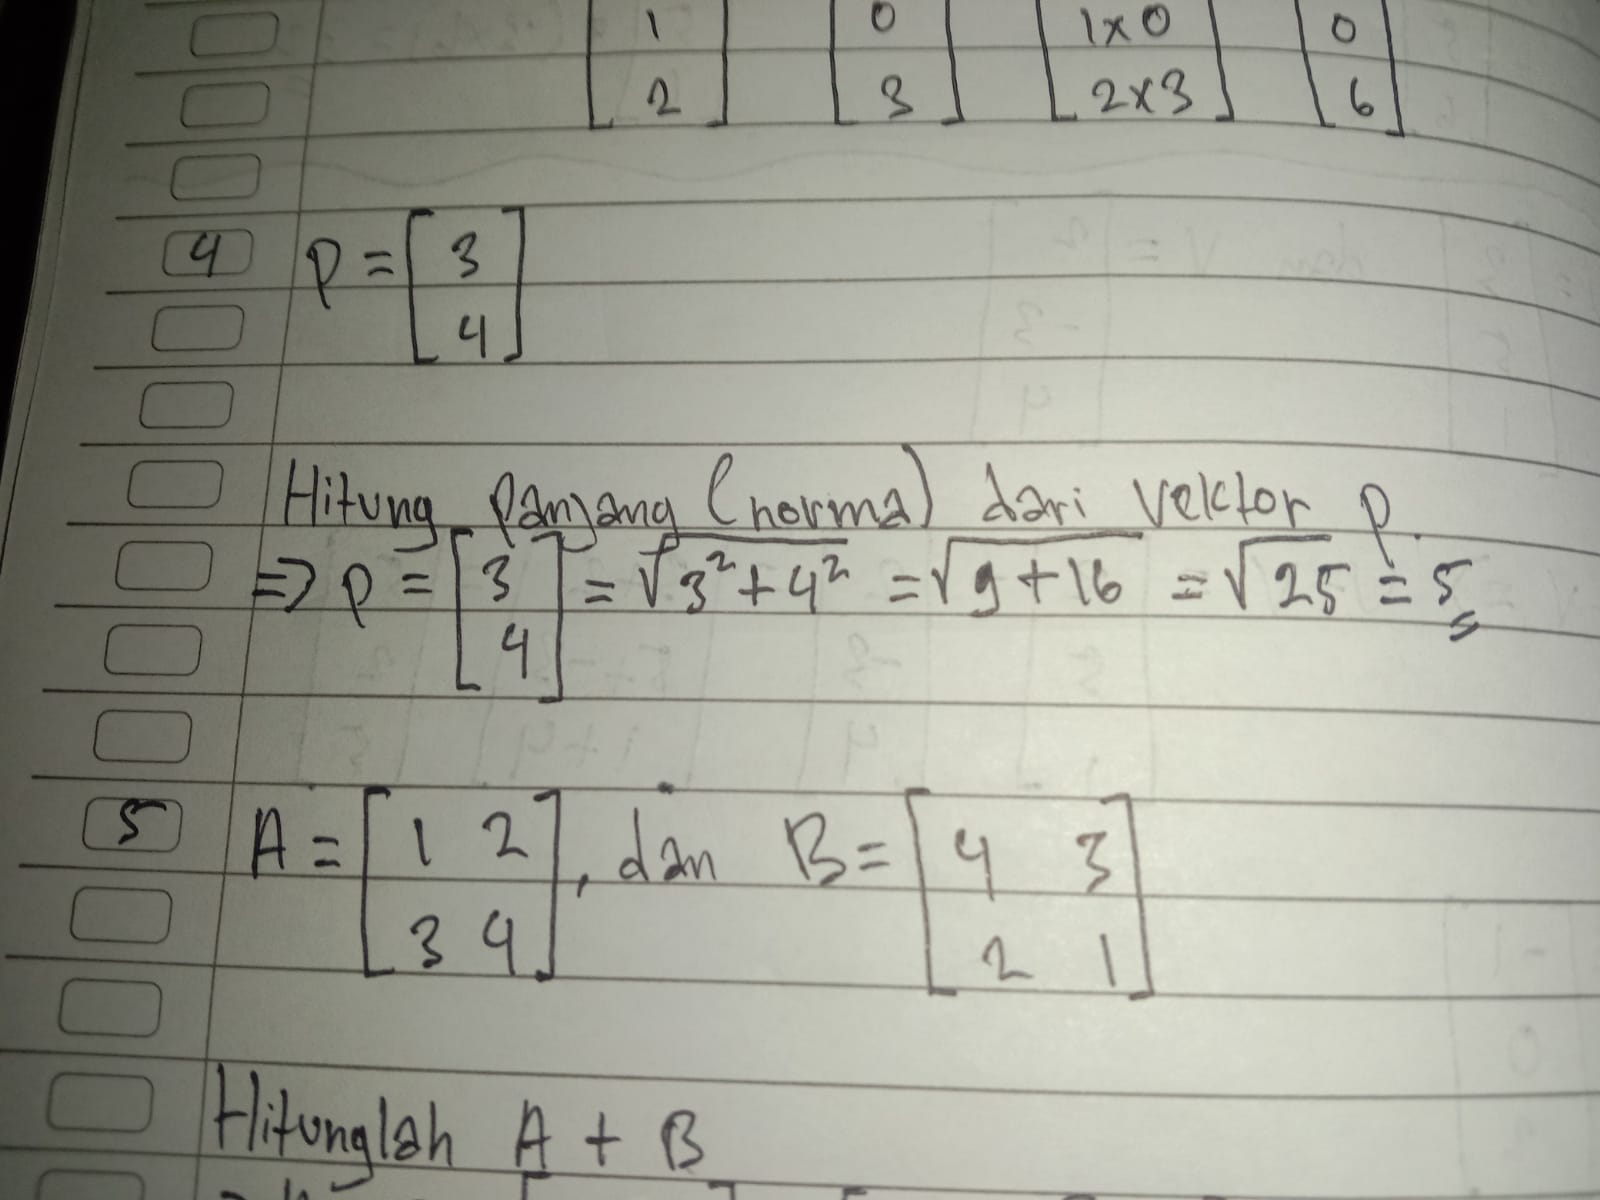 [1 2] [0 3] [1x0 2x3] [0 6]
4 P = [3 4]
Hitung Panjang (norma) dari Vektor P.
=> P = [3 4] = √3²+4² = √9+16 = √25 = 5
5 A = [1 2 3 4], dan B = [4 3 2 1]
Hitunglah A + B